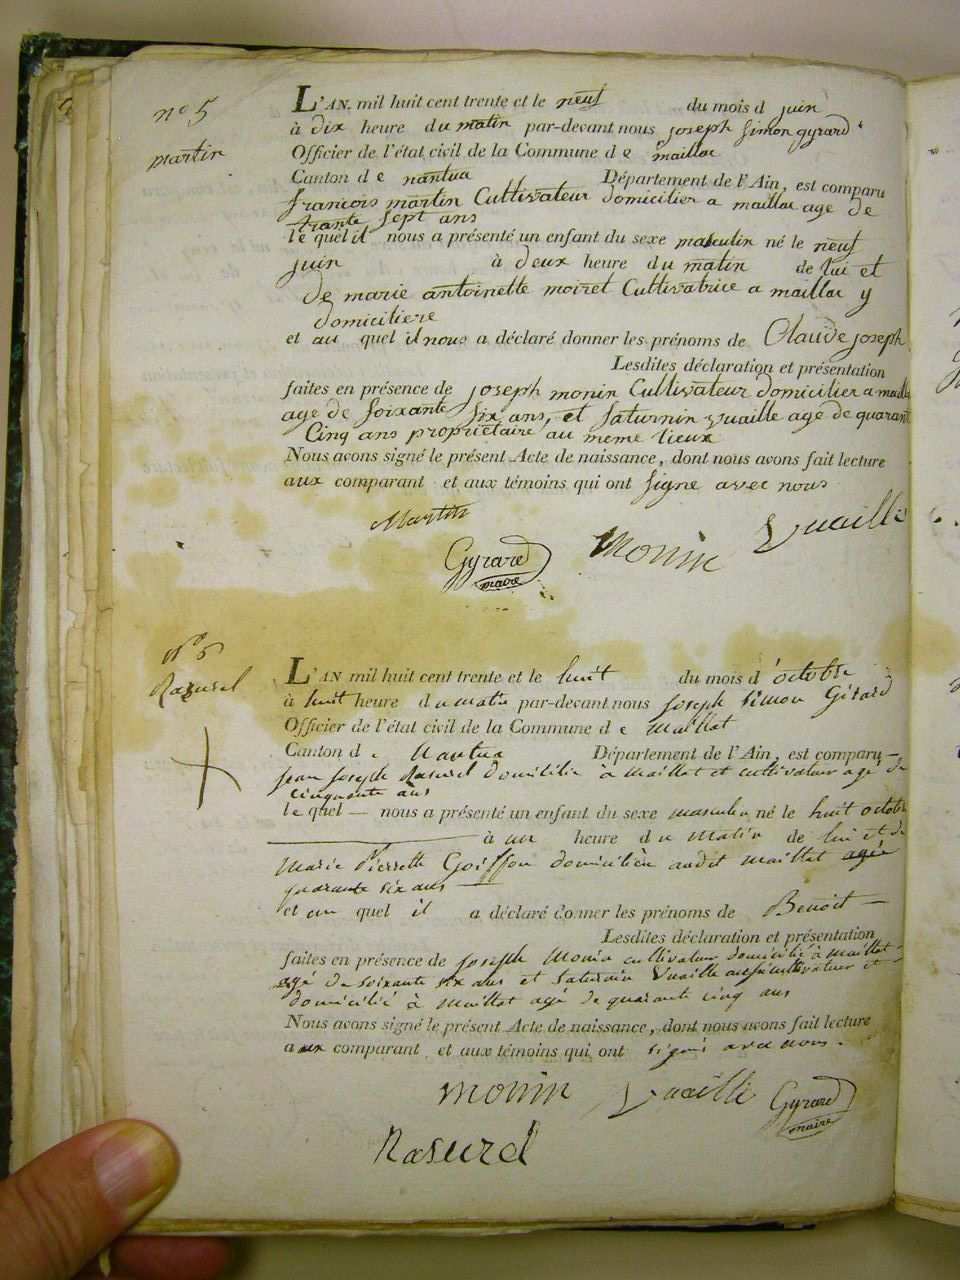 n° 5
martin
L'AN mil huit cent trente et le neuf du mois d juin
à dix heure du matin par-devant nous joseph simon gyrard
Officier de l'état civil de la Commune de maillac
Canton de nantua Département de l'Ain, est comparu
francois martin Cultivateur domicilier a maillac age de
trante sept ans
le quel il nous a présenté un enfant du sexe masculin né le neuf
juin à deux heure du matin de lui et
de marie antoinette moiret Cultivatrice a maillac y
domiciliere
et au quel il nous a déclaré donner les prénoms de Claude joseph
Lesdites déclaration et présentation
faites en présence de joseph monin Cultivateur domicilier a mailla
age de soixante six ans, et saturnin vuaille age de quarant
Cinq ans propriétaire au meme lieux
Nous avons signé le présent Acte de naissance, dont nous avons fait lecture
aux comparant et aux témoins qui ont signe avec nous
Martin
Gyrard
maire
monin
Vuaille
n° 6
Rasurel
L'AN mil huit cent trente et le huit du mois d'octobre
à huit heure du matin par-devant nous joseph simon Girard
Officier de l'état civil de la Commune de Maillat
Canton de Nantua Département de l'Ain, est comparu
jean joseph Rasurel domicilié à Maillat et cultivateur agé de
cinquante ans
le quel nous a présenté un enfant du sexe masculin né le huit octobre
à un heure du matin de lui et de
Marie Pierrette Goiffon domicilièe audit maillat agée
quarante six ans
et au quel il a déclaré donner les prénoms de Benoit
Lesdites déclaration et présentation
faites en présence de joseph Monin cultivateur domicilié à maillat
agé de soixante six ans et saturnin Vuaille aussi cultivateur et
domicilié à Maillat agé de quarante cinq ans
Nous avons signé le présent Acte de naissance, dont nous avons fait lecture
aux comparant et aux témoins qui ont signés avec nous.
monin
Vuaille
Gyrard
maire
Rasurel